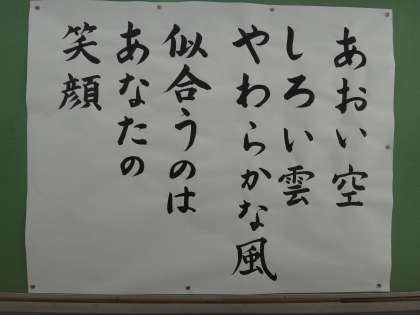 あおい空
しろい雲
やわらかな風
似合うのは
あなたの
笑顔